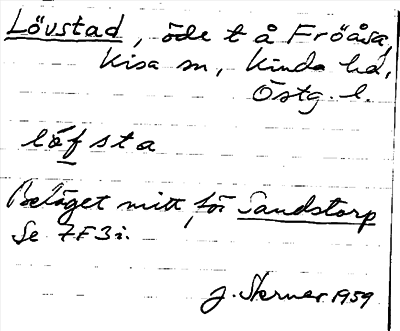 Lövstad, öde t å Fröåsa,
Kisa sn, Kinda hd,
Östg. l.
löfsta
Beläget mitt för Sandstorp
Se 7F3i.
J. Skerner 1959